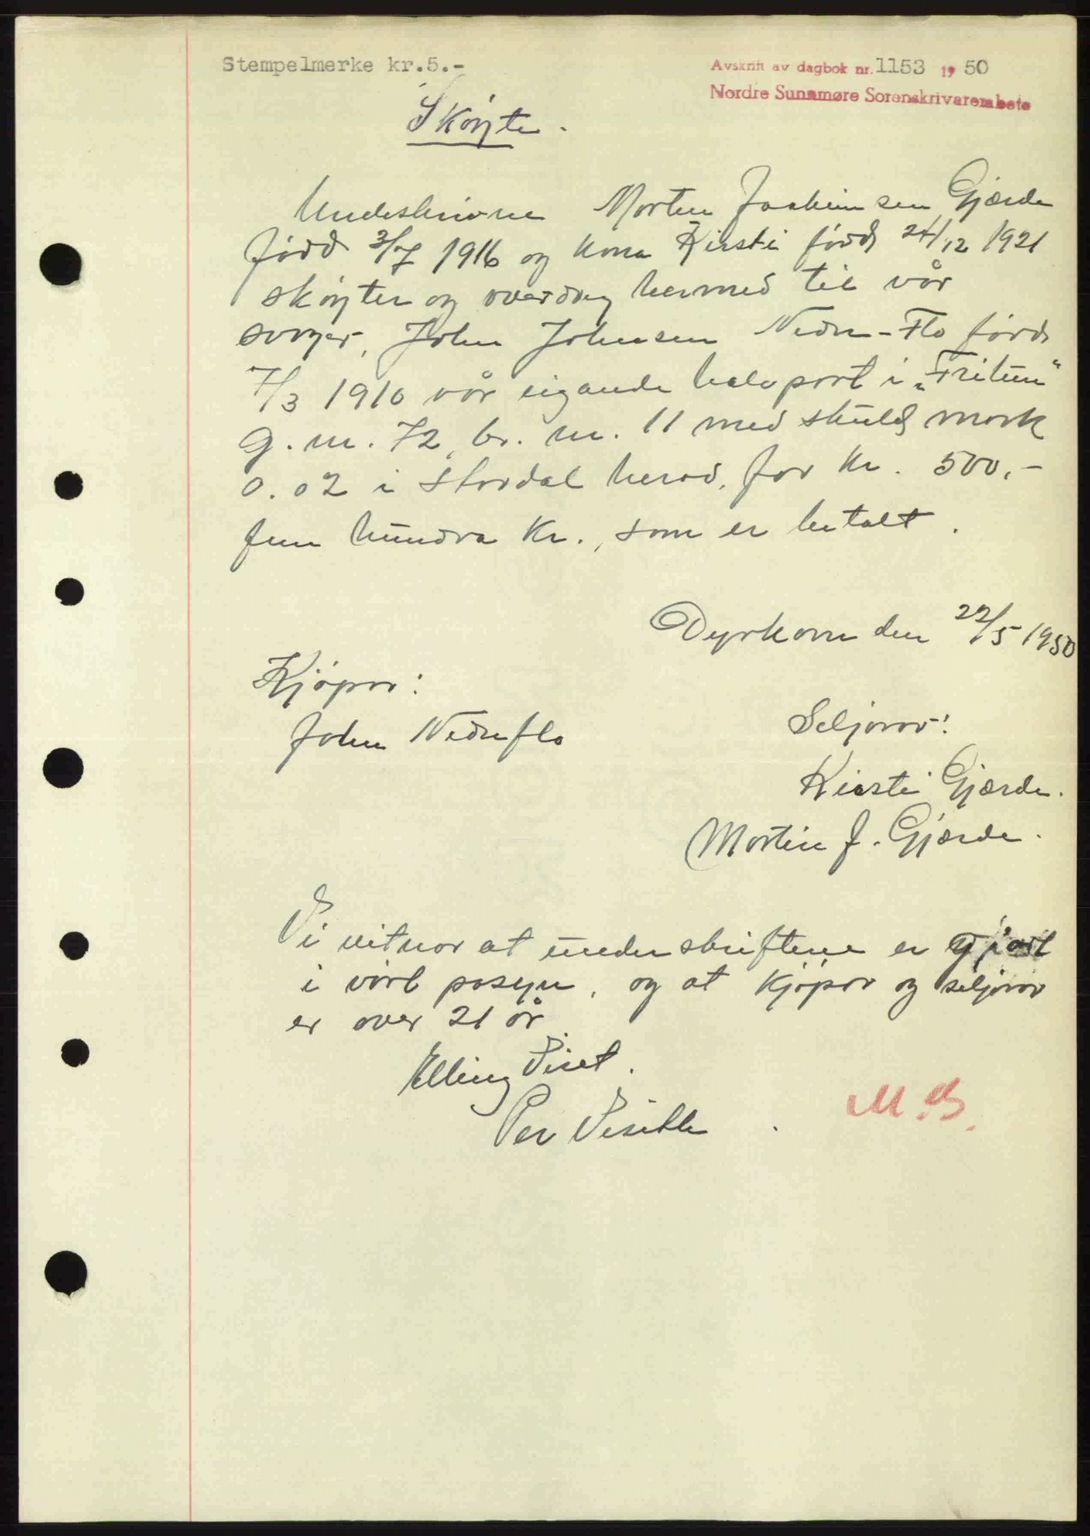 Stempelmerke kr.5.-
Avskrift av dagbok nr. 1153 19 50
Nordre Sunnmøre Sorenskrivarembete
Skøyte.
Underskrivne Morten Joakimsen Gjærde
fødd 3/7 1916 og kona Kirsti fødd 24/12 1921
skøyter og overdreg hermed til vår
svoger, John Johnsen Nedre-Flo fødd
7/3 1910 vår eigande halvpart i „Fritun"
g. nr. 72, br. nr. 11 med skuld mark
0.02 i Stordal herad, for kr. 500,-
fem hundra Kr., som er betalt.
Dyrkorn den 22/5 1950
Kjøpar:
John Nedreflo
Seljarar:
Kirsti Gjærde.
Morten J. Gjærde.
Vi vitnar at underskriftene er gjort
i vårt påsyn, og at kjøpar og seljarar
er over 21 år
Elling Viset.
Per Visette
M.B.